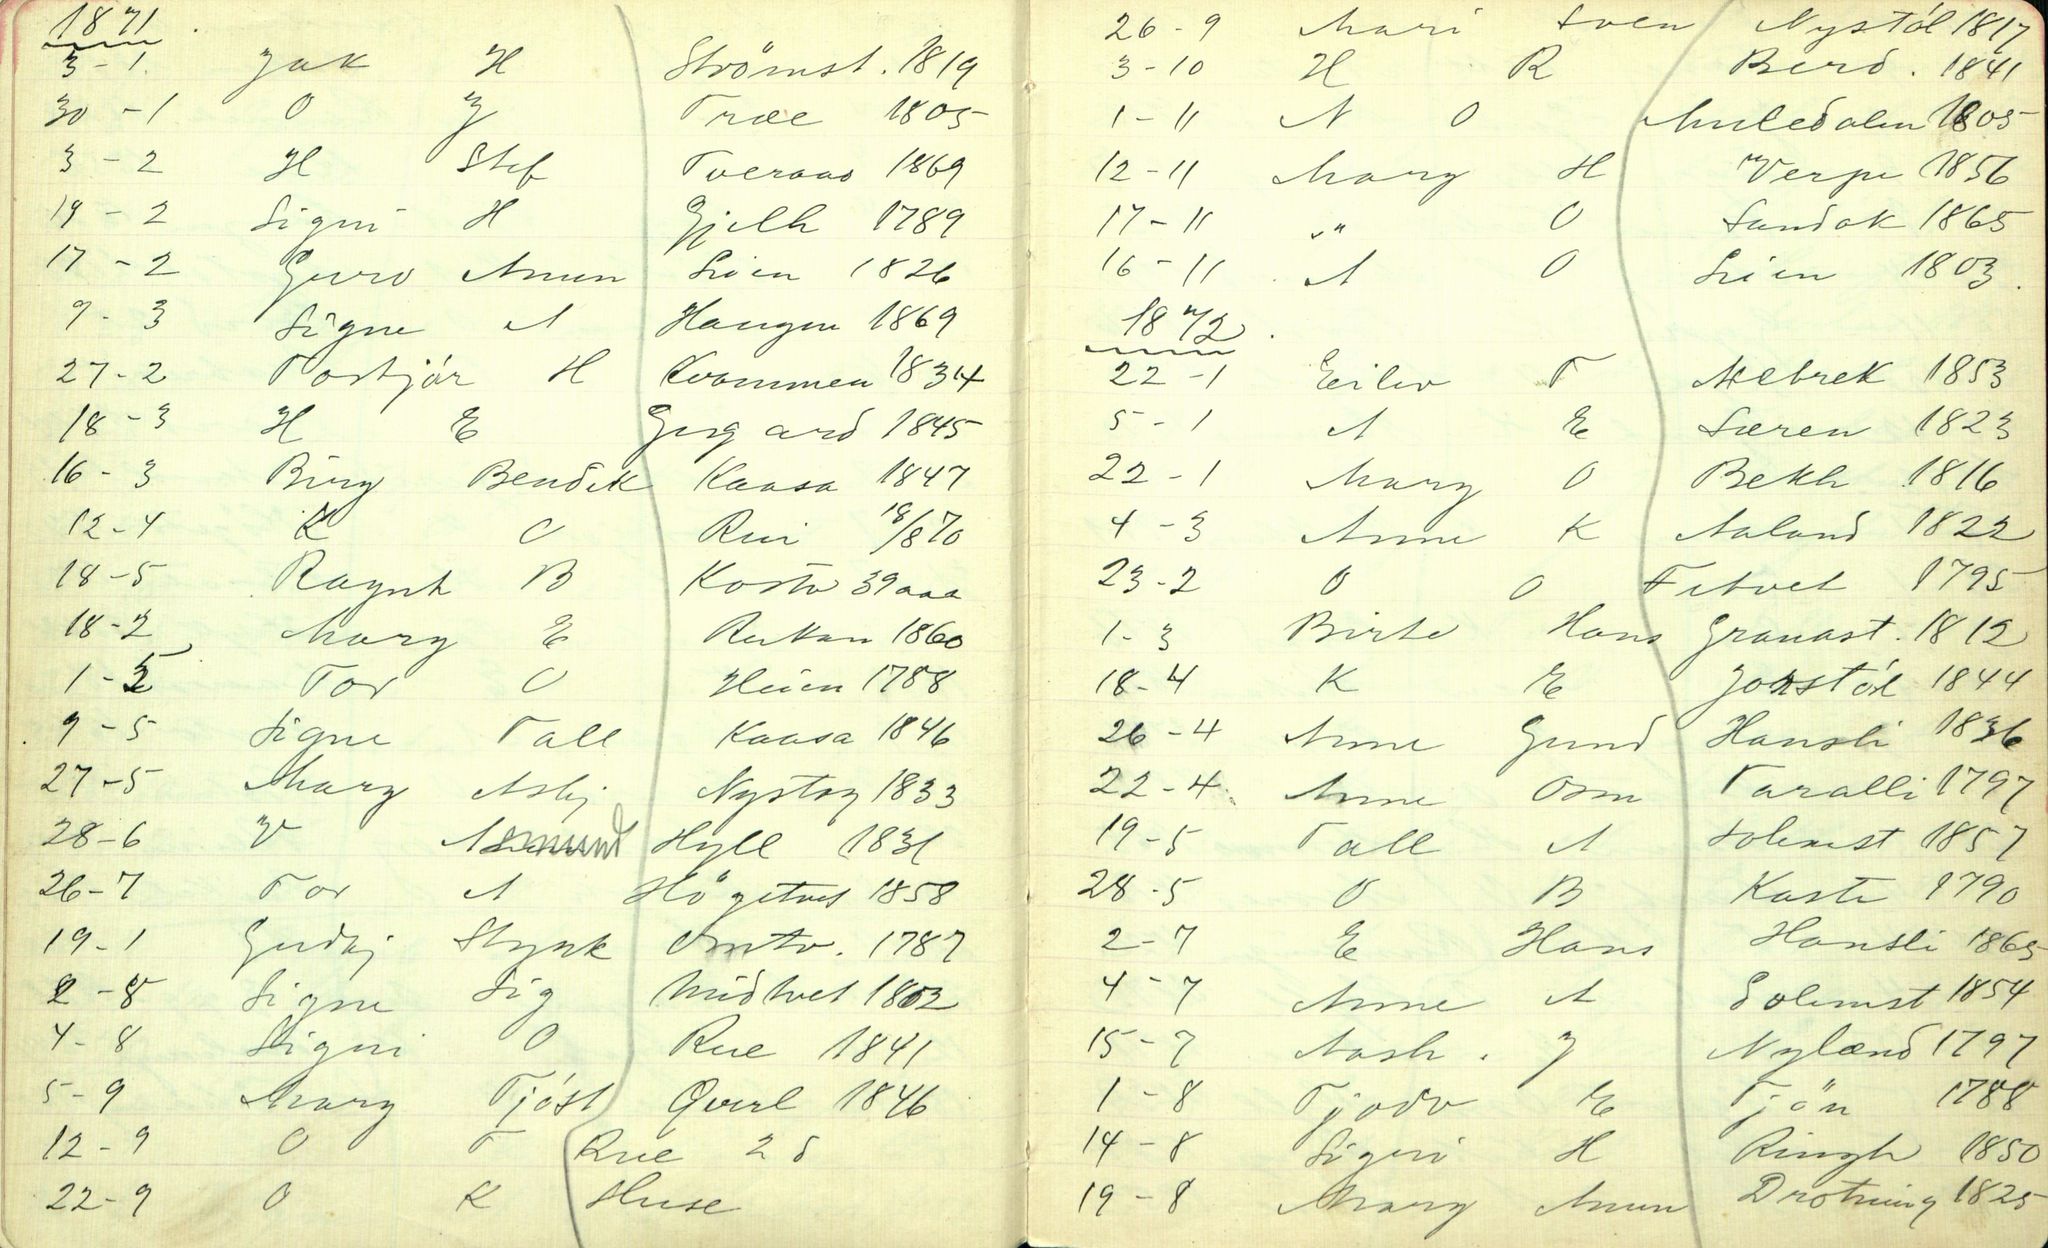 1871
3-1. Jak H Strömst. 1819
30-1 O J Træe 1805
3-2 H Stef Tveraas 1869
19-2 Signi H Gjelh 1789
17-2 Guro Amun Lien 1826
9-3 Signe A Haugen 1869
27-2 Torbjór H Kvammen 1834
18-3 H E Gusgard 1845
16-3 Birg Bendik Kaasa 1847
12-4 K O Rui 18/8 70
18-5 Ragnh B Kostv 39 aaa
18-2 Marg E Rukan 1860
1-5 Tor O Heien 1788
9-5 Signe Tall Kaasa 1846
27-5 Marg Asbj Nystog 1833
28-6 V Asmund Hyll 1831
26-7 Tor A Högetvet 1858
19-1 Gudbj Stynk Omtv. 1787
2-8 Signe Sig Midtvet 1802
4-8 Signi O Rue 1841
5-9 Marg Tjóst Qverl 1846
12-9 O T Rue 2 d
22-9 O K Huse
26-9 Mari Sven Nystól 1817
3-10 H R Berd. 1841
1-11 N O Muledalen 1805
12-11 Marg H Verpe 1856
17-11 " O Sandok 1865
16-11 A O Lien 1803.
1872.
22-1 Eilev T Næbrek 1853
5-1 A E Særen 1823
22-1 Marg O Bekh 1816
4-3 Anne K Aaland 1822
23-2 O O Fitvet 1795
1-3 Birte Hans Granast. 1812
18-4 K E Jonstól 1844
26-4 Anne Gund Hansli 1836
22-4. Anne Osm Taralli 1797
19-5 Tall A Solemst 1857
28-5 O B Kaste 1790
2-7 E Hans Hansli 1865
4-7 Anne A Solemst 1854
15-7 Aash. J Nylænd 1797
1-8 Tjodv E Tjön 1788
14-8 Signi H Ringh 1850
19-8 Marg Amun Drotning 1825